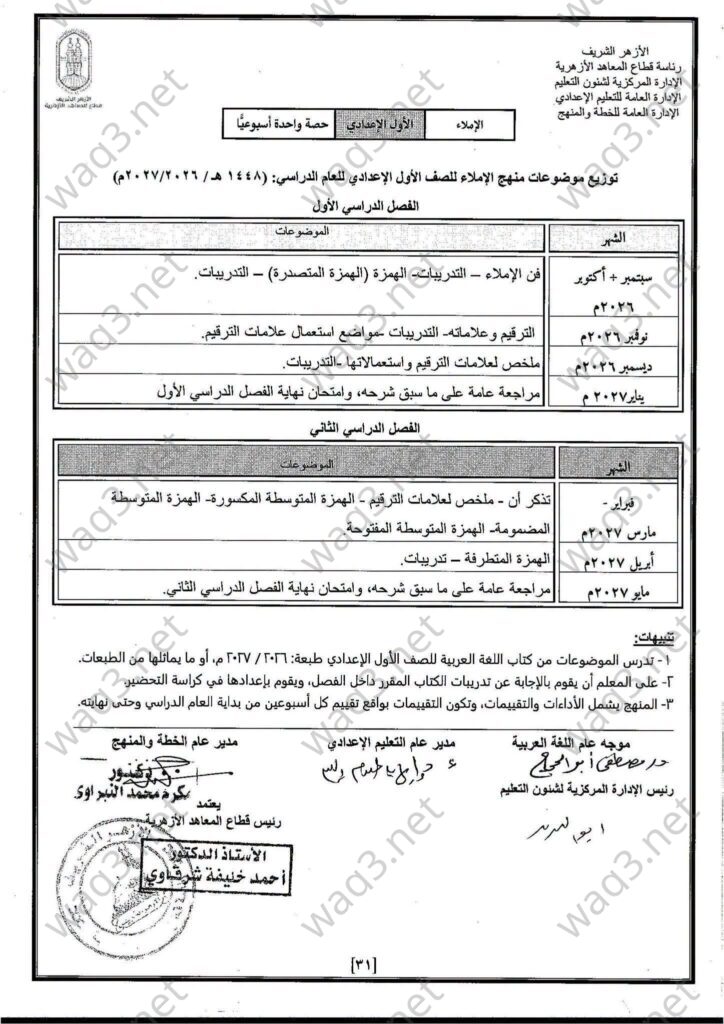 الأزهر الشريف
رئاسة قطاع المعاهد الأزهرية
الإدارة المركزية لشئون التعليم
الإدارة العامة للتعليم الإعدادي
الإدارة العامة للخطة والمنهج
الأزهر الشريف
قطاع المعاهد الأزهرية
الإملاء
الأول الإعدادي
حصة واحدة أسبوعيًّا
توزيع موضوعات منهج الإملاء للصف الأول الإعدادي للعام الدراسي: (١٤٤٨ هـ / ٢٠٢٧/٢٠٢٦م)
الفصل الدراسي الأول
الشهر
الموضوعات
سبتمبر + أكتوبر ٢٠٢٦م
فن الإملاء – التدريبات- الهمزة (الهمزة المتصدرة) – التدريبات.
نوفمبر ٢٠٢٦م
الترقيم وعلاماته- التدريبات -مواضع استعمال علامات الترقيم.
ديسمبر ٢٠٢٦م
ملخص لعلامات الترقيم واستعمالاتها -التدريبات.
يناير٢٠٢٧ م
مراجعة عامة على ما سبق شرحه، وامتحان نهاية الفصل الدراسي الأول
الفصل الدراسي الثاني
الشهر
الموضوعات
فبراير -
مارس ٢٠٢٧م
تذكر أن - ملخص لعلامات الترقيم - الهمزة المتوسطة المكسورة- الهمزة المتوسطة
المضمومة- الهمزة المتوسطة المفتوحة.
أبريل ٢٠٢٧م
الهمزة المتطرفة – تدريبات.
مايو ٢٠٢٧م
مراجعة عامة على ما سبق شرحه، وامتحان نهاية الفصل الدراسي الثاني.
تنبيهات:
١- تدرس الموضوعات من كتاب اللغة العربية للصف الأول الإعدادي طبعة: ٢٠٢٦ / ٢٠٢٧ م، أو ما يماثلها من الطبعات.
٢- على المعلم أن يقوم بالإجابة عن تدريبات الكتاب المقرر داخل الفصل، ويقوم بإعدادها في كراسة التحضير.
٣- المنهج يشمل الأداءات والتقييمات، وتكون التقييمات بواقع تقييم كل أسبوعين من بداية العام الدراسي وحتى نهايته.
موجه عام اللغة العربية
مدير عام التعليم الإعدادي
مدير عام الخطة والمنهج
دكتور
كرم محمد النبراوي
رئيس الإدارة المركزية لشئون التعليم
يعتمد
رئيس قطاع المعاهد الأزهرية
الأستاذ الدكتور
أحمد خليفة شرقاوي
[٣١]
waq3.net